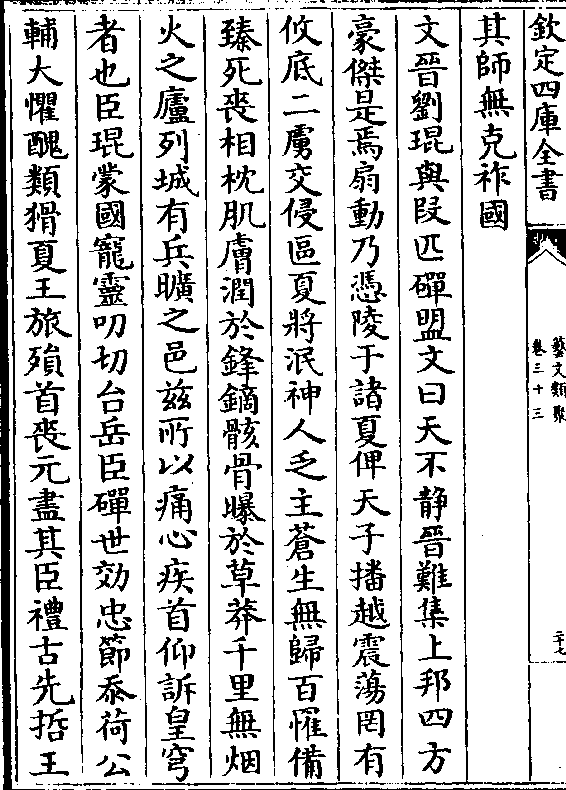 欽定四庫全書
藝文類聚
卷三十三
二十七
其師無克祚國
文晉劉琨與段匹磾盟文曰天不靜晉難集上邦四方
豪傑是焉扇動乃憑陵于諸夏俾天子播越震蕩罔有
攸底二虜交侵區夏將泯神人乏主蒼生無歸百罹備
臻死喪相枕肌膚潤於鋒鏑骸骨曝於草莽千里無烟
火之廬列城有兵曠之邑茲所以痛心疾首仰訴皇穹
者也臣琨蒙國寵靈叨切台岳臣磾世効忠節忝荷公
輔大懼醜類猾夏王旅殞首喪元盡其臣禮古先哲王